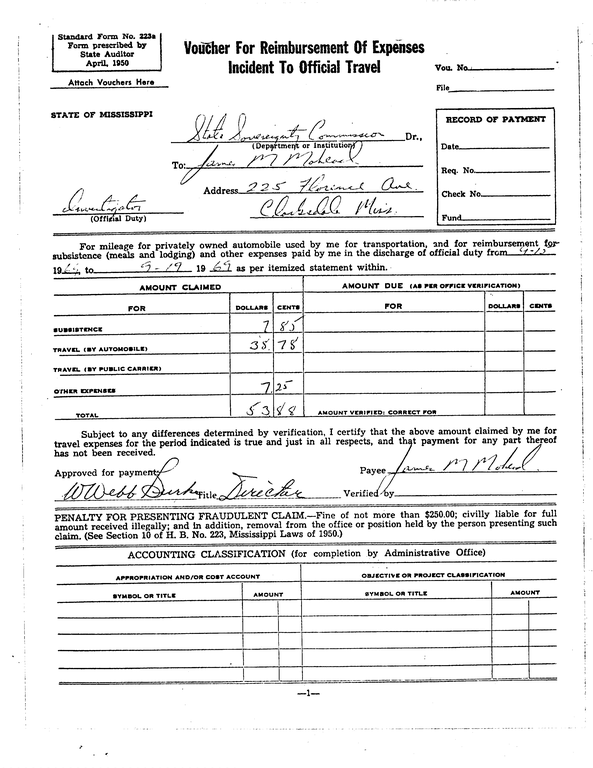 Standard Form No. 223a
Form prescribed by
State Auditor
April, 1950
Attach Vouchers Here
Voucher For Reimbursement Of Expenses
Incident To Official Travel
Vou. No.
File
STATE OF MISSISSIPPI
State Sovereignty Commission Dr.,
(Department or Institution)
To: James M Mohead
Address 225 Florence Ave.
Clarksdale Miss.
Investigator
(Official Duty)
RECORD OF PAYMENT
Date
Req. No.
Check No.
Fund
For mileage for privately owned automobile used by me for transportation, and for reimbursement for
subsistence (meals and lodging) and other expenses paid by me in the discharge of official duty from
19 to 9-19 1969 as per itemized statement within.
AMOUNT CLAIMED AMOUNT DUE (AS PER OFFICE VERIFICATION)
FOR DOLLARS CENTS FOR DOLLARS CENTS
SUBSISTENCE 7 85
TRAVEL (BY AUTOMOBILE) 38 78
TRAVEL (BY PUBLIC CARRIER)
OTHER EXPENSES 7 25
TOTAL 53 88 AMOUNT VERIFIED: CORRECT FOR
Subject to any differences determined by verification, I certify that the above amount claimed by me for
travel expenses for the period indicated is true and just in all respects, and that payment for any part thereof
has not been received.
Approved for payment Payee James M Mohead
W Webb Burke Title Director Verified by
PENALTY FOR PRESENTING FRAUDULENT CLAIM.—Fine of not more than $250.00; civilly liable for full
amount received illegally; and in addition, removal from the office or position held by the person presenting such
claim. (See Section 10 of H. B. No. 223, Mississippi Laws of 1950.)
ACCOUNTING CLASSIFICATION (for completion by Administrative Office)
APPROPRIATION AND/OR COST ACCOUNT OBJECTIVE OR PROJECT CLASSIFICATION
SYMBOL OR TITLE AMOUNT SYMBOL OR TITLE AMOUNT
—1—